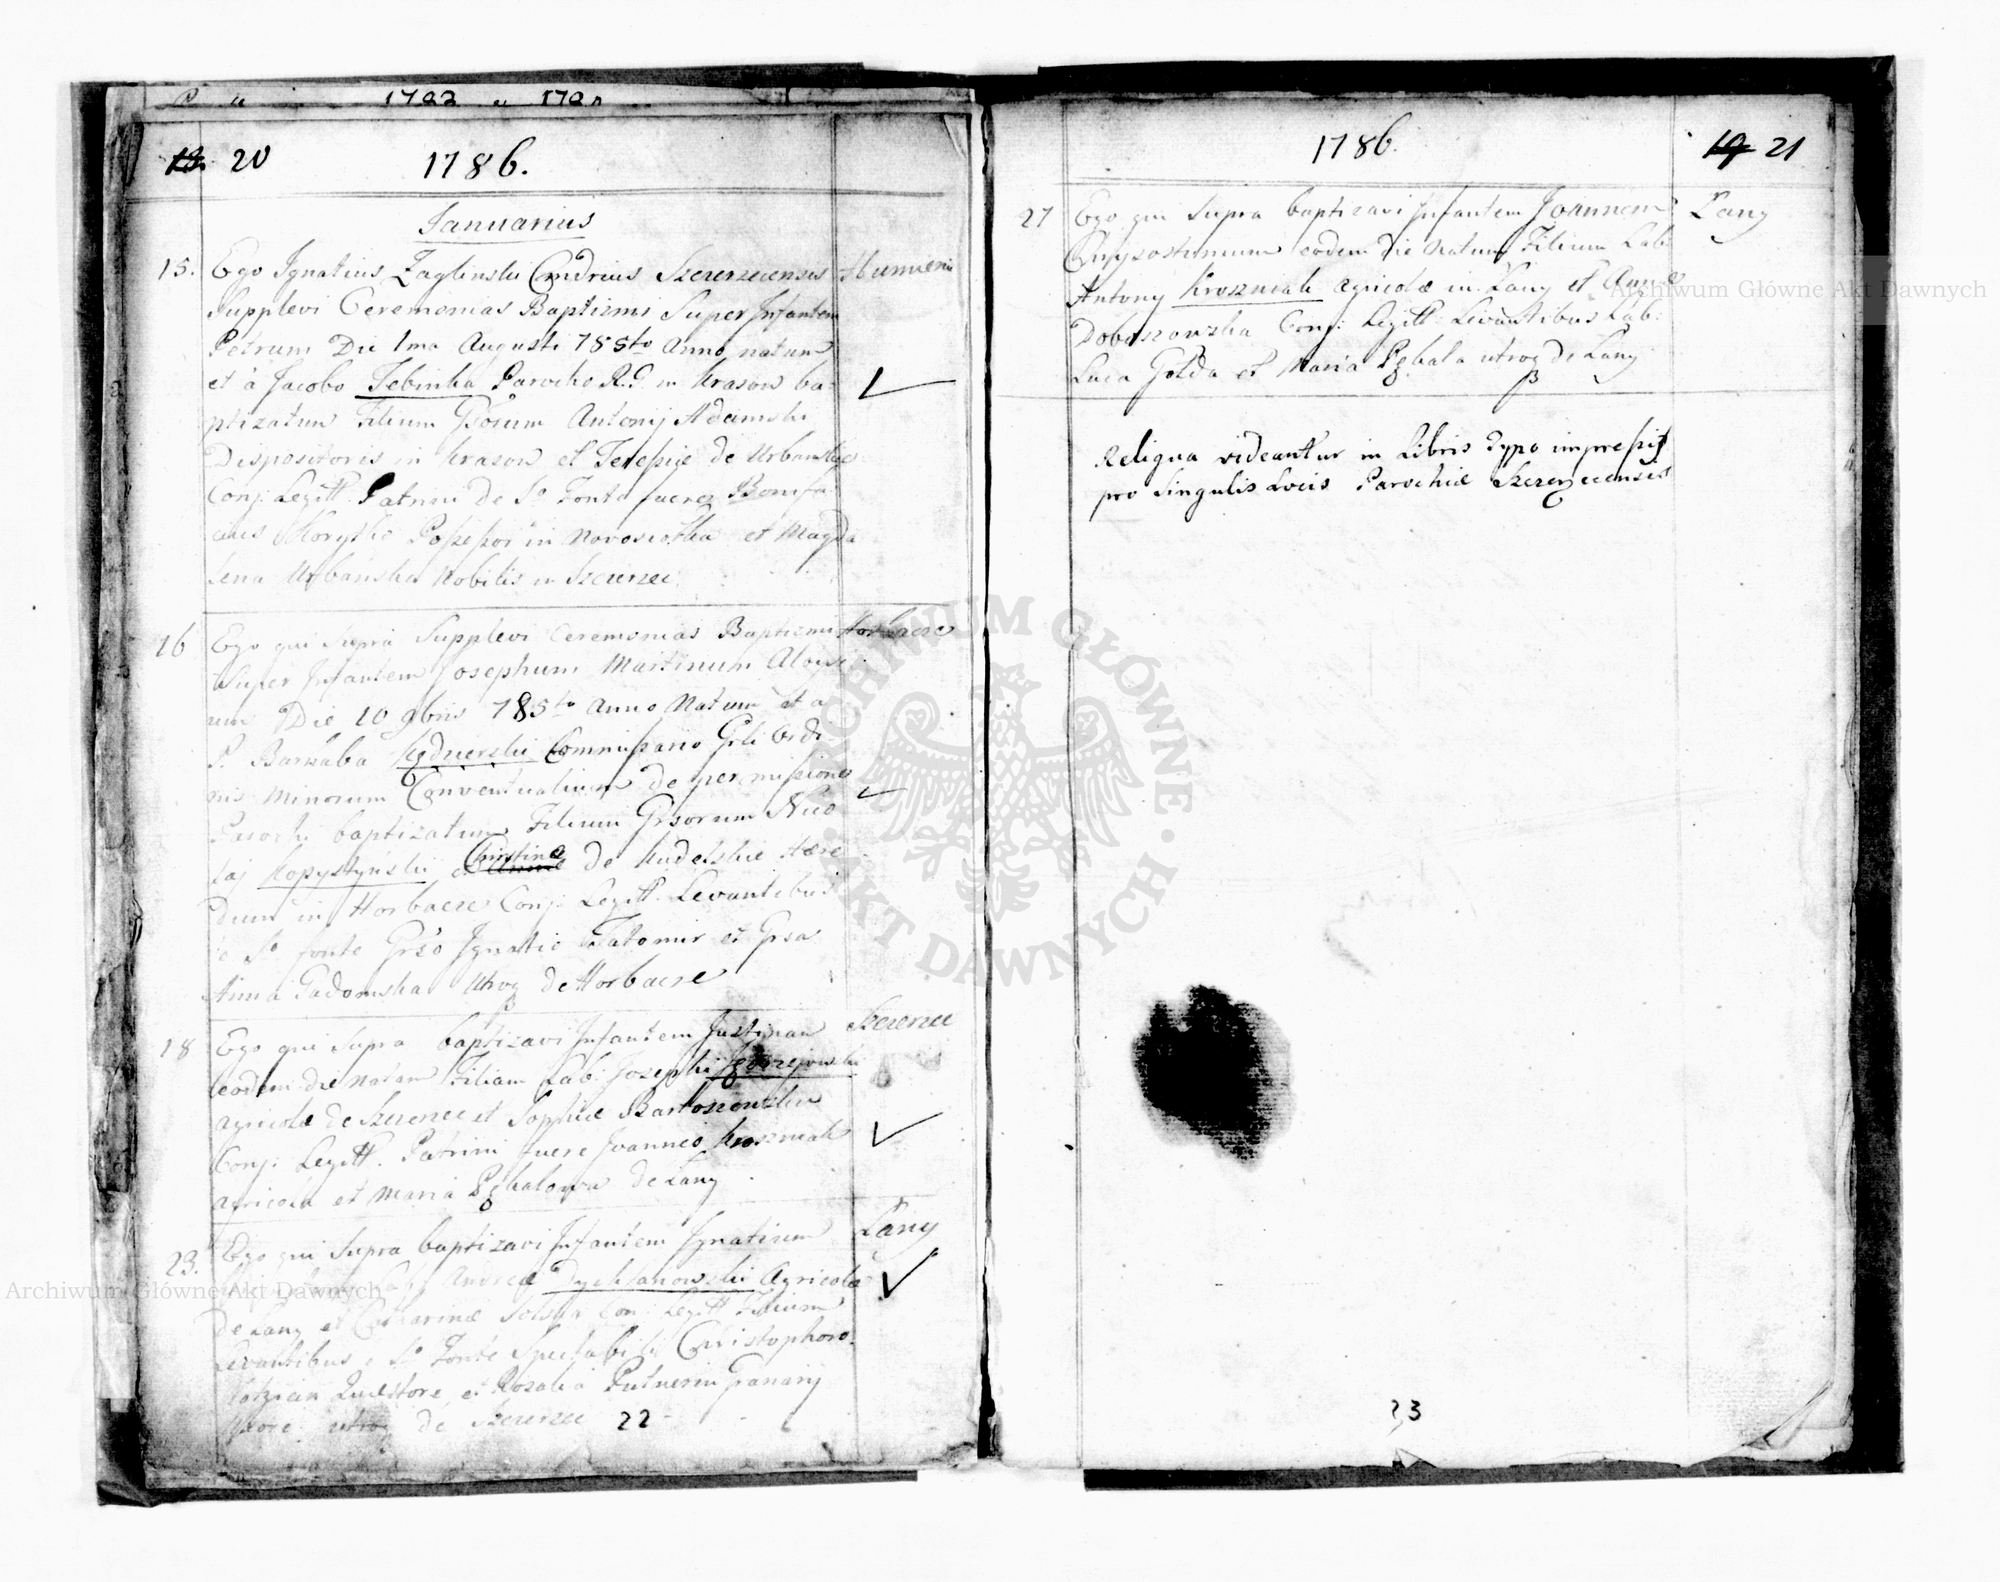 1786.
20
Januarius
15. Ego Ignatius Zaglinski Cendrius Szczerzecensis Humieniec
Supplevi Ceremonias Baptismi Super Infantem
Petrum Die 1ma Augusti 785to Anno natum
et à Jacobo Jebinka Parocho R. G. in Krasow ba-
ptizatum Filium Gsorum Antonij Adamski
Dispositoris in Krasow et Teresiæ de Urbanskie
Conj: Legitt. Patrini de So Fonte fuere Bonifa-
cius Possessor in Novosiolka et Magda
lena Urbanska Nobilis in Szczerzec
16 Ego qui Supra Supplevi Ceremonias Baptismi Horbacze
Super Infantem Josephum Martinum Aloysi
um Die 10 9bris 785to Anno Natum et a
P. Barnaba Kędzierski Commissario Gnli Ordi
nis Minorum Conventualium de permissione
Parochi baptizatum Filium Grsorum Nico
laj Kopystynski et Christinæ de Hære
dum in Horbacze Conj: Legitt. Levantibus
So fonte Grso Ignatio Tatomir et Grsa
Anna Gadomska Utroq de Horbacze
18 Ego qui Supra baptizavi Infantem Justinam Szczerzec
eodem die Natam Filiam Lab: Josephi Jędrzejowski
agricolæ de Szczerzec et Sophiæ Bartoszowska
Conj: Legitt. Patrini fuere Joannes Kroszniak
agricola et Maria Pękalowa de Łany
23. Ego qui Supra baptizavi Infantem Ignatium Łany
Lab: Andreæ Dychtanowski Agricolæ
de Łany et Catharinæ Conj: Legitt. Filium
Levantibus e So Fonte Spectabili Christophoro
Quæstore et Rosalia Granarij
utroq de Szczerzec
22
1786.
19 21
27 Ego qui Supra baptizavi Infantem Joannem Łany
Chrysostomum eodem die Natum Filium Lab:
Antony Kroszniak agricolæ in Łany et Annæ
Doboszowska Conj: Legitt: Levantibus Lab:
Luca Gołda et Maria Pękala utroq de Łany
Reliqua videantur in Libris Typo impressis
pro Singulis Locis Parochiæ Szczerzecensis
23
Archiwum Główne Akt Dawnych
Archiwum Główne Akt Dawnych
ARCHIWUM GŁÓWNE AKT DAWNYCH